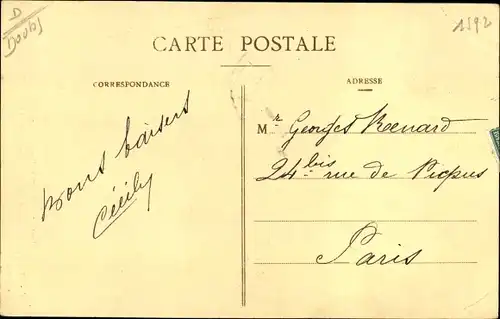 D
Doubs
1592
CARTE POSTALE
CORRESPONDANCE
ADRESSE
Bons baisers
Cécily
Mr Georges Renard
24 bis rue de Picpus
Paris